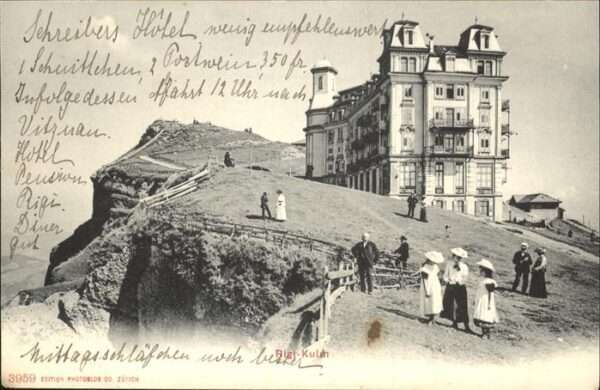 Schreibers Hôtel wenig empfehlenswert
1 Schnittchen, 2 Portwein 3 50 fr.
Infolgedessen Abfahrt 12 Uhr nach
Vitznau.
Hôtel
Pension
Rigi
Diner
gut
Rigi-Kulm
Mittagsschläfchen noch besser
3959 EDITION PHOTOGLOB CO. ZÜRICH